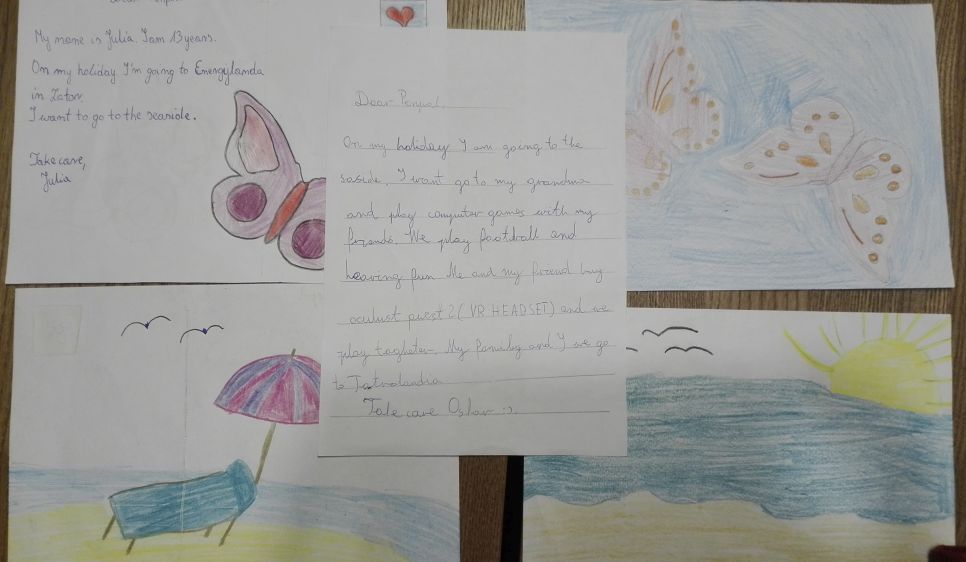 My name is Julia. I am 13 years.
On my holiday I'm going to Energylanda
in Zator
I want to go to the seaside.
Take care,
Julia
Dear Penpal,
On my holiday I am going to the
saside. I want go to my grandma
and play computer games with my
friends. We play football and
heaving fun Me and my friend buy
oculust quest 2 ( VR HEADSET) and we
play togheter. My family and I we go
to Tatralandia
Take care Oskar :).